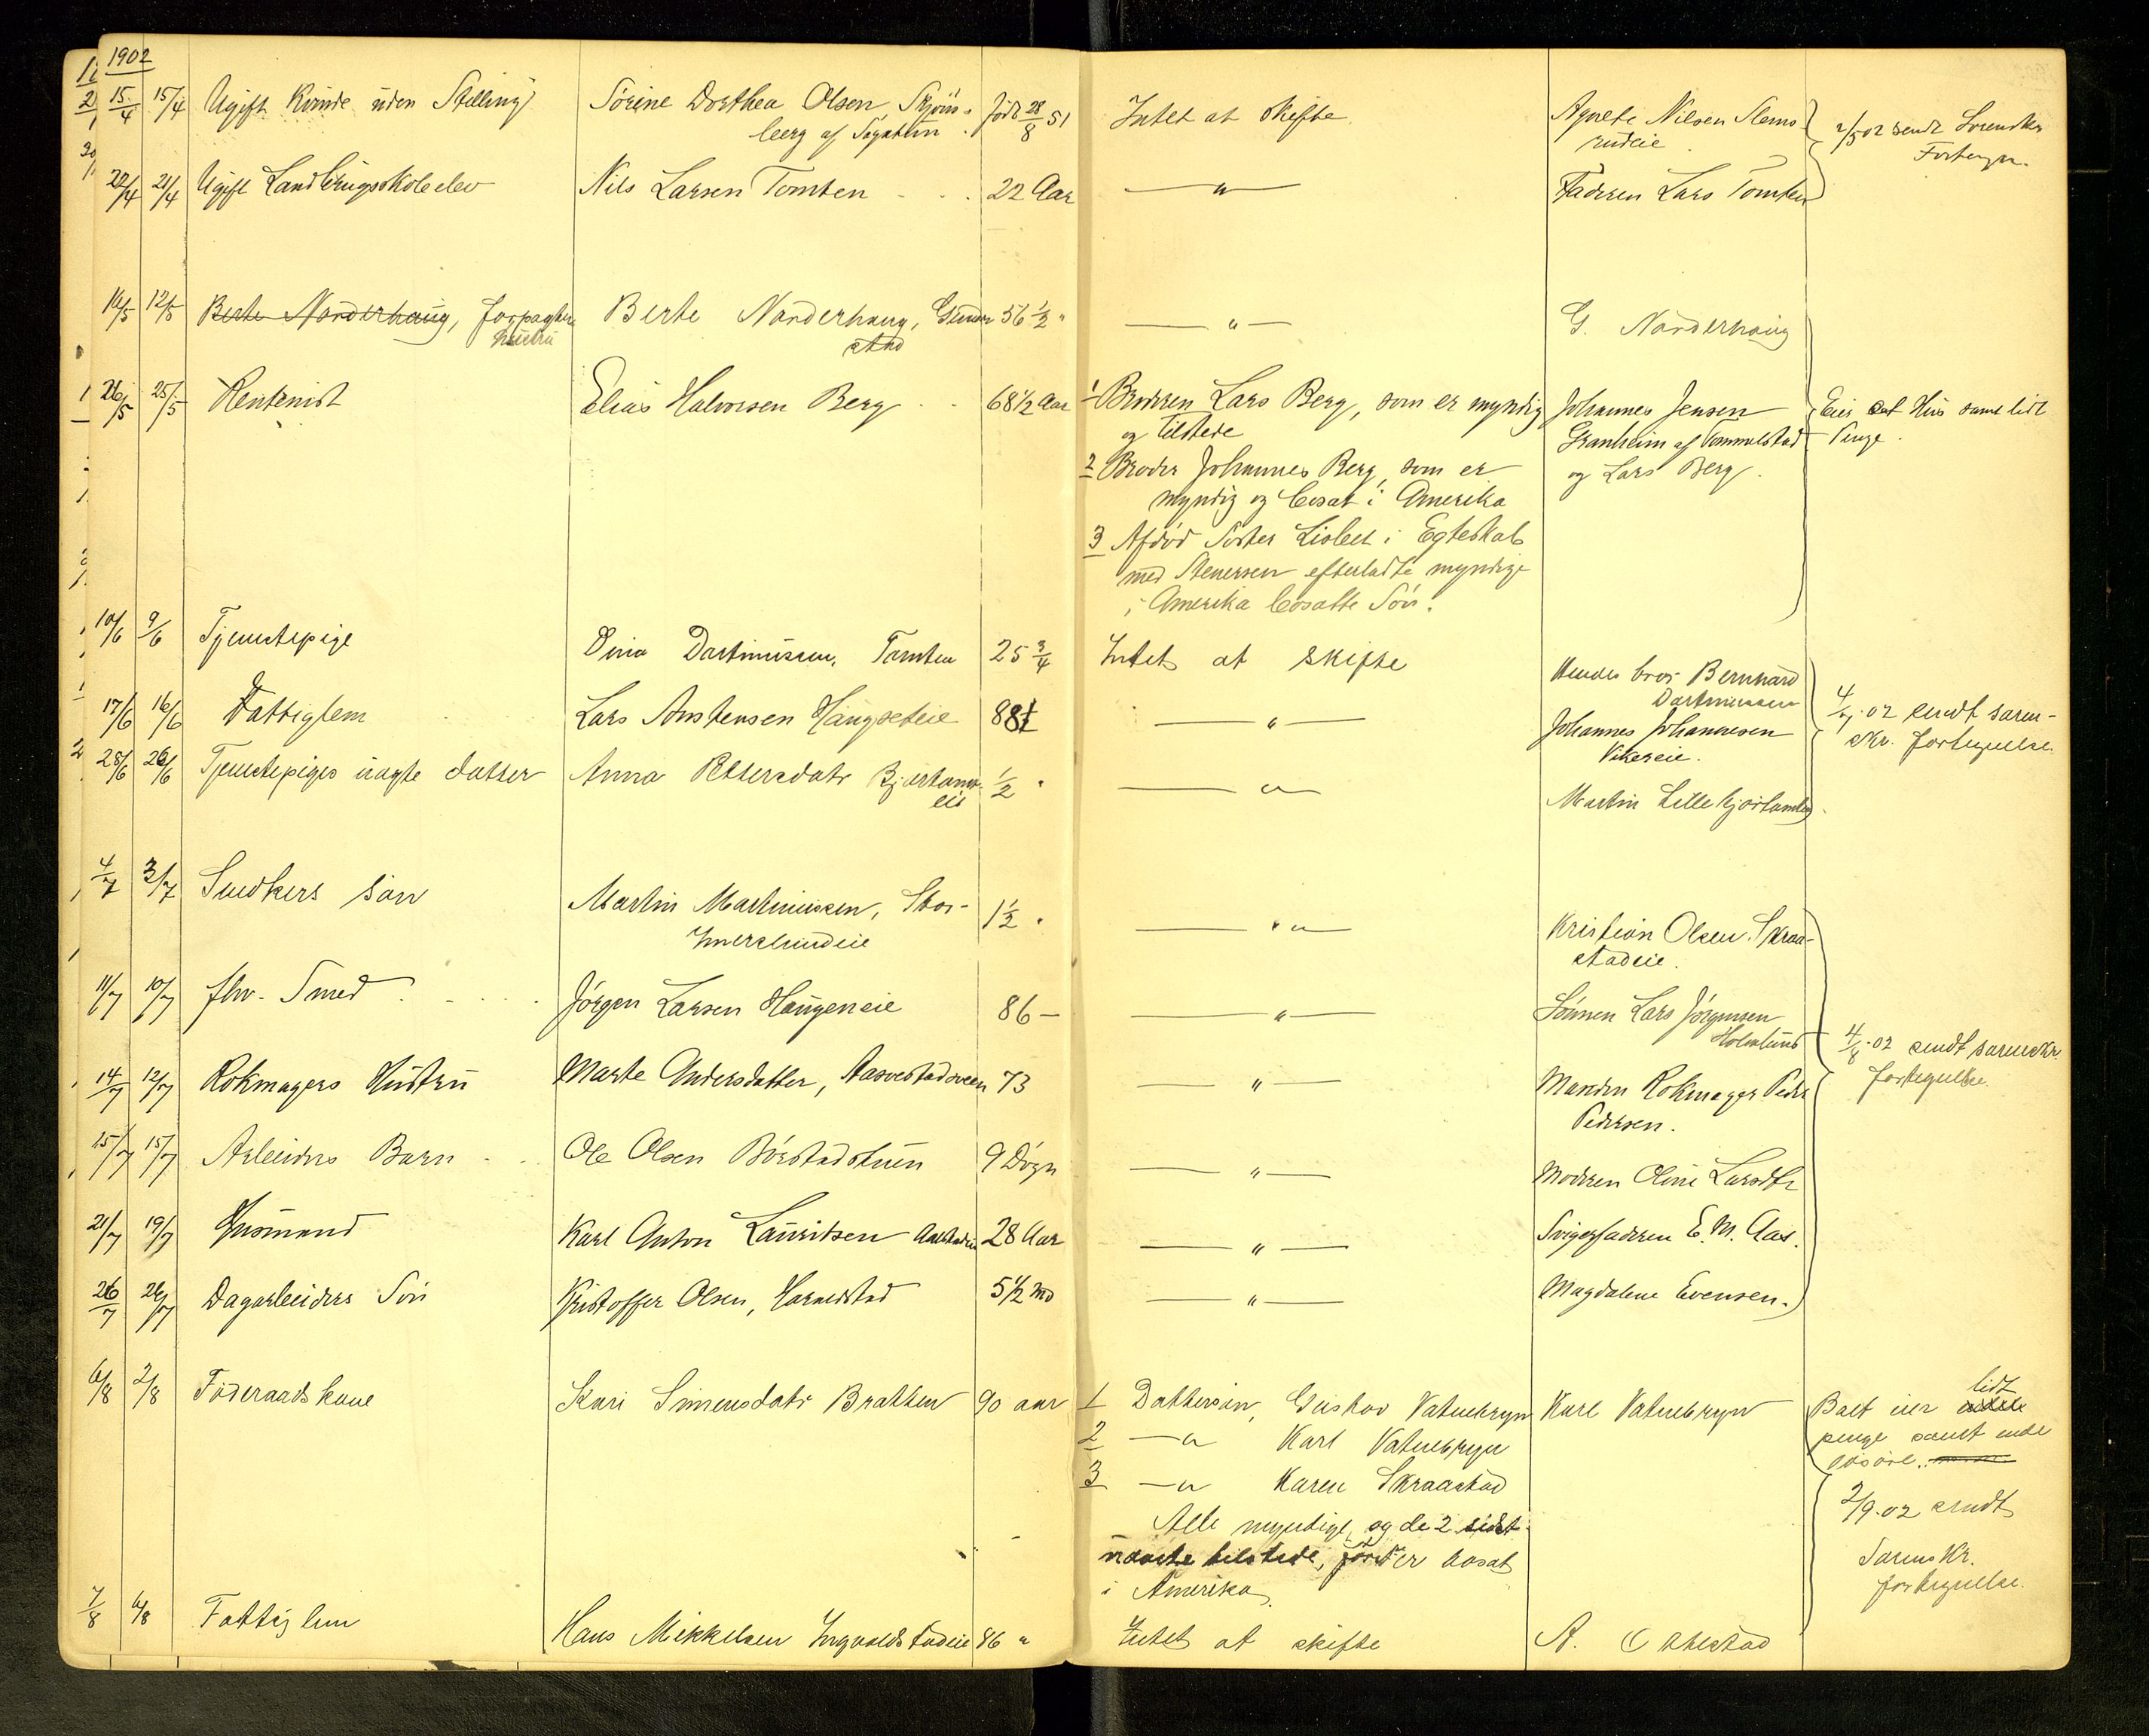 1902
15/4 15/4 Ugift Kvinde uden Stilling Sörine Dorthea Olsen, Skjöns- född 28/8 51 Intet at skifte Agnete Nilsen Slems-
berg af rudeie 2/5 02 sendt Sorenskr
Fortegn.
22/4 21/4 Ugift Landbrugsskoleelev Nils Larsen Tomten 22 Aar — " — Faderen Lars Tomten
14/5 12/5 Berte Norderhaug, forpagters Berte Norderhaug, 56 1/2 " — " — G. Norderhaug
hustru stad
26/5 25/5 Rentenist Elias Halvorsen Berg 68 1/2 Aar 1 Broderen Lars Berg, som er myndig Johannes Jensen Eier et Hus samt lidt
og tilstede Granheim af Tommelstad Penge.
2 Broder Johannes Berg, som er og Lars Berg.
myndig og bosat i Amerika
3 Afdöd Söster Lisbet i Egteskab
med Stenersen efterladte myndige
i Amerika bosatte Sön.
10/6 9/6 Tjenestepige Dina Dortinussen, Tomten 25 3/4 Intet at skifte Hendes bror Bernhard
Dortinussen
17/6 16/6 Fattiglem Lars Anstensen Haugseteie 88 — " — Johannes Johannesen 4/7.02 sendt soren-
Vikereie. skr. fortegnelse.
28/6 26/6 Tjenestepiges uægte datter Anna Pettersdatr 1/2 " — " — Martin Lille
eie
4/7 3/7 Snedkers sön Martin Martinussen, Stor- 1 1/2 " — " — Kristian Olsen Skraa-
Imerslundeie stadeie.
11/7 10/7 fhv. Smed Jörgen Larsen Haugeneie 86 — — " — Sönnen Lars Jörgensen
Holmlund 4/8.02 sendt sorenskr
14/7 12/7 Rokmagers Hustru Marte Andersdatter, Aasvestadsveen 73 — " — Manden Rokmager Peder fortegnelse.
Pedersen.
15/7 15/7 Arbeiders Barn Ole Olsen Börstadstuen 9 Dögn — " — Moderen Oline Larsdtr
21/7 19/7 Husmand Karl Anton Lauritsen 28 Aar — " — Svigerfaderen E. M. Aas.
26/7 26/7 Dagarbeiders Sön Kristoffer Olsen, Hornedstad 5 1/2 Md — " — Magdalene Evensen.
6/8 2/8 Föderaadskone Kari Simensdatr Bratten 90 aar 1 Dattersön, Gustav Vatnebryn Karl Vatnebryn Boet eier lidt
2 — " Karl Vatnebryn penge samt endel
3 — " Karen Skraastad lösöre.
Alle myndige, og de 2 sidst- 2/9.02 sendt
nævnte tilstede, först er bosat Sorenskr.
i Amerika. fortegnelse.
7/8 6/8 Fattiglem Hans Mikkelsen Ingvaldstadeie 86 " Intet at skifte A.